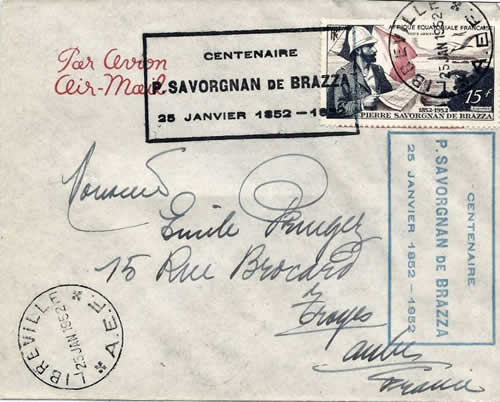 Par Avion
Air-Mail
CENTENAIRE
P. SAVORGNAN DE BRAZZA
25 JANVIER 1852 - 1952
AFRIQUE EQUATORIALE FRANÇAISE
15F
1852-1952
PIERRE SAVORGNAN DE BRAZZA
LIBREVILLE
25 JAN 1952
A.E.F.
CENTENAIRE
P. SAVORGNAN DE BRAZZA
25 JANVIER 1852 - 1952
Monsieur
Emile
15 Rue Brocard
Troyes
Aube
France
LIBREVILLE
25 JAN 1952
A.E.F.